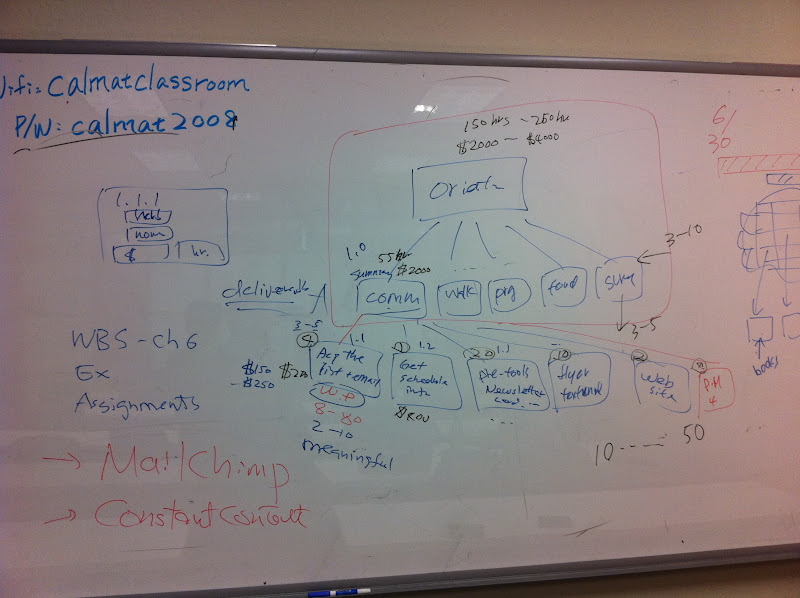 Wifi: calmatclassroom
P/W: calmat2008
6/
30
150 hrs ~ 250 hr
$2000 ~ $4000
1.1.1
nom
$
hr.
1.0
55 hr
summary $2000
3-10
deliverable
comm
walk
prg
food
3-5
3-5
1.1
list email
$150
- $250
$200
W.P
8-80
2-10
meaningful
1
1.2
Get
schedule
info
$800
20
1.3
pre-tools
Newsletter
10
flyer
web
site
P.M
4
books
10 ---- 50
WBS-ch6
Ex
Assignments
→ MailChimp
→ Constant contact